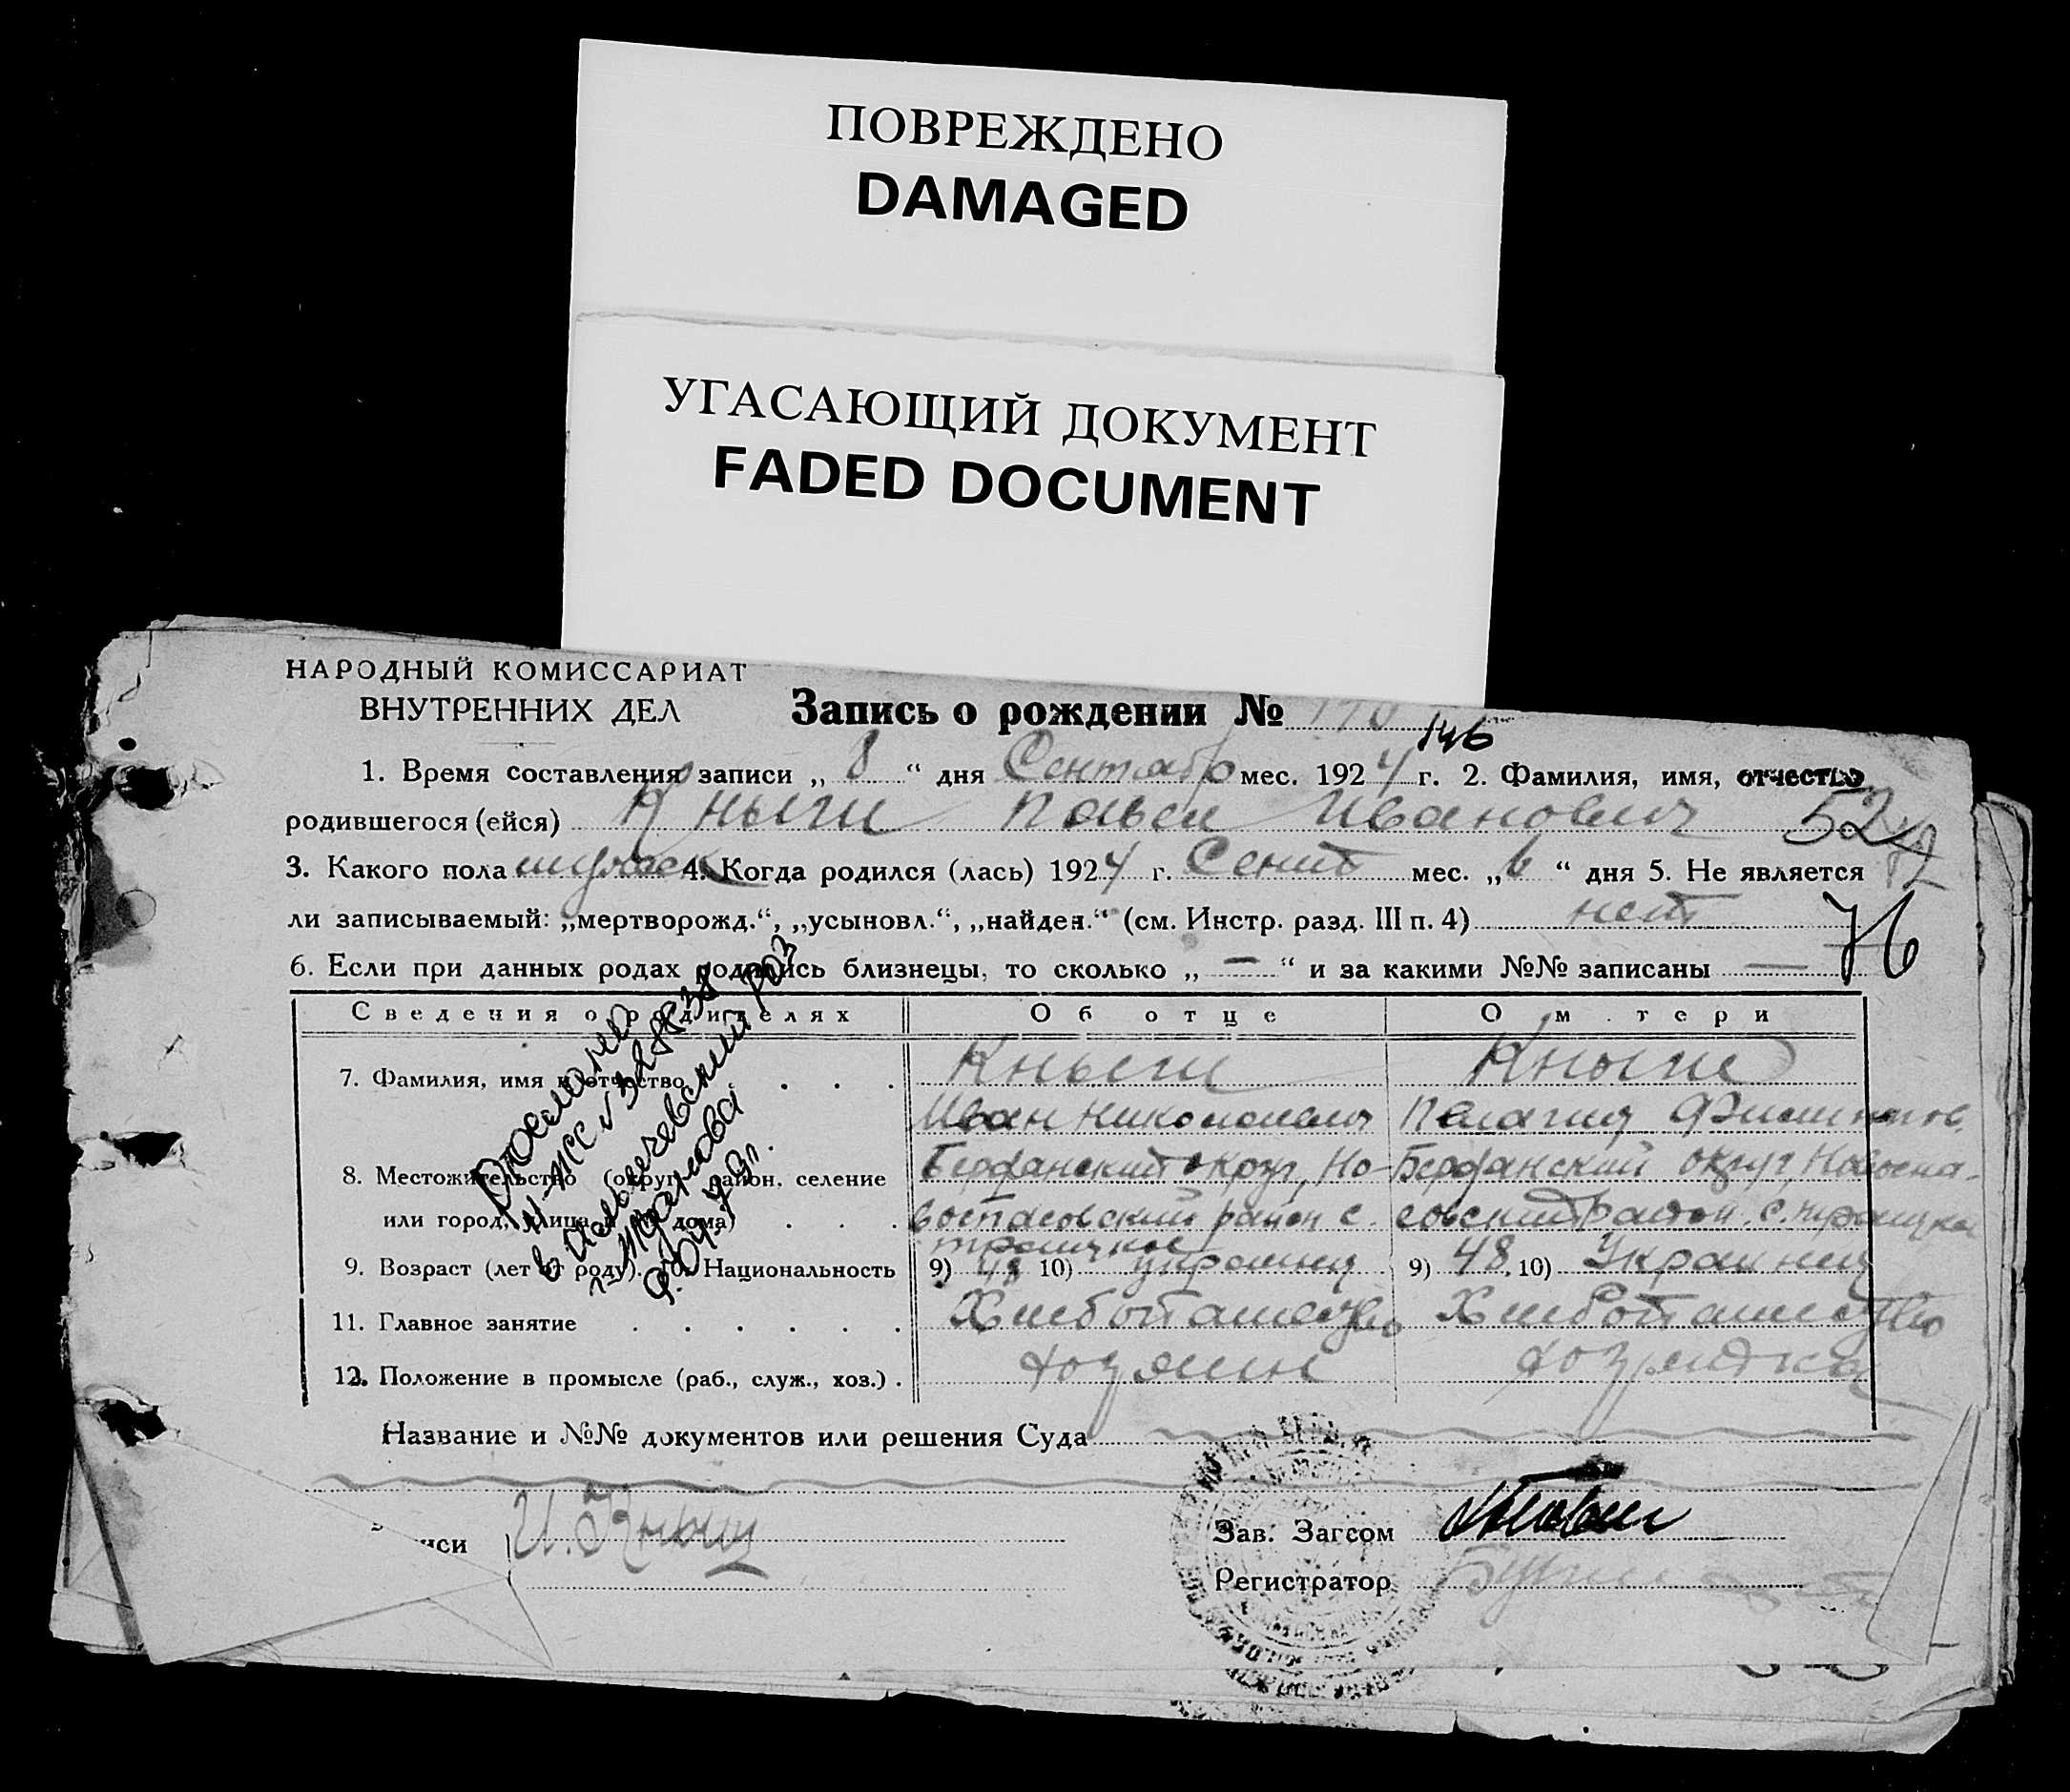 ПОВРЕЖДЕНО
DAMAGED
УГАСАЮЩИЙ ДОКУМЕНТ
FADED DOCUMENT
НАРОДНЫЙ КОМИССАРИАТ
ВНУТРЕННИХ ДЕЛ
Запись о рождении №
146
1. Время составления записи „ 8 “ дня Сентабр мес. 1924 г. 2. Фамилия, имя, отчество
родившегося (ейся) Кныш Павел Иванович 52
3. Какого пола мужск 4. Когда родился (лась) 1924 г. Сент мес. „ 6 “ дня 5. Не является
ли записываемый: „мертворожд.“, „усыновл.“, „найден.“ (см. Инстр. разд. III п. 4) нет
76
6. Если при данных родах родились близнецы, то сколько „ — “ и за какими №№ записаны —
Сведения о родителях Об отце О м тери
7. Фамилия, имя и отчество Кныш Кныш
Иван Николаевич Пелагия
8. Местожительство (округ, район, селение Бердянский округ, Но- Бердянский округ, Новоспа-
или город, улица, № дома) воспасовский район с совский район. с. Троицка
троицкое
9. Возраст (лет от роду). 10. Национальность 9) 48 10) украинец 9) 48, 10) Украинец
11. Главное занятие Хлебопашество Хлебопашество
12. Положение в промысле (раб., служ., хоз.) хозяин хозяйка
Название и №№ документов или решения Суда
иси И. Кныш
Зав. Загсом
Регистратор